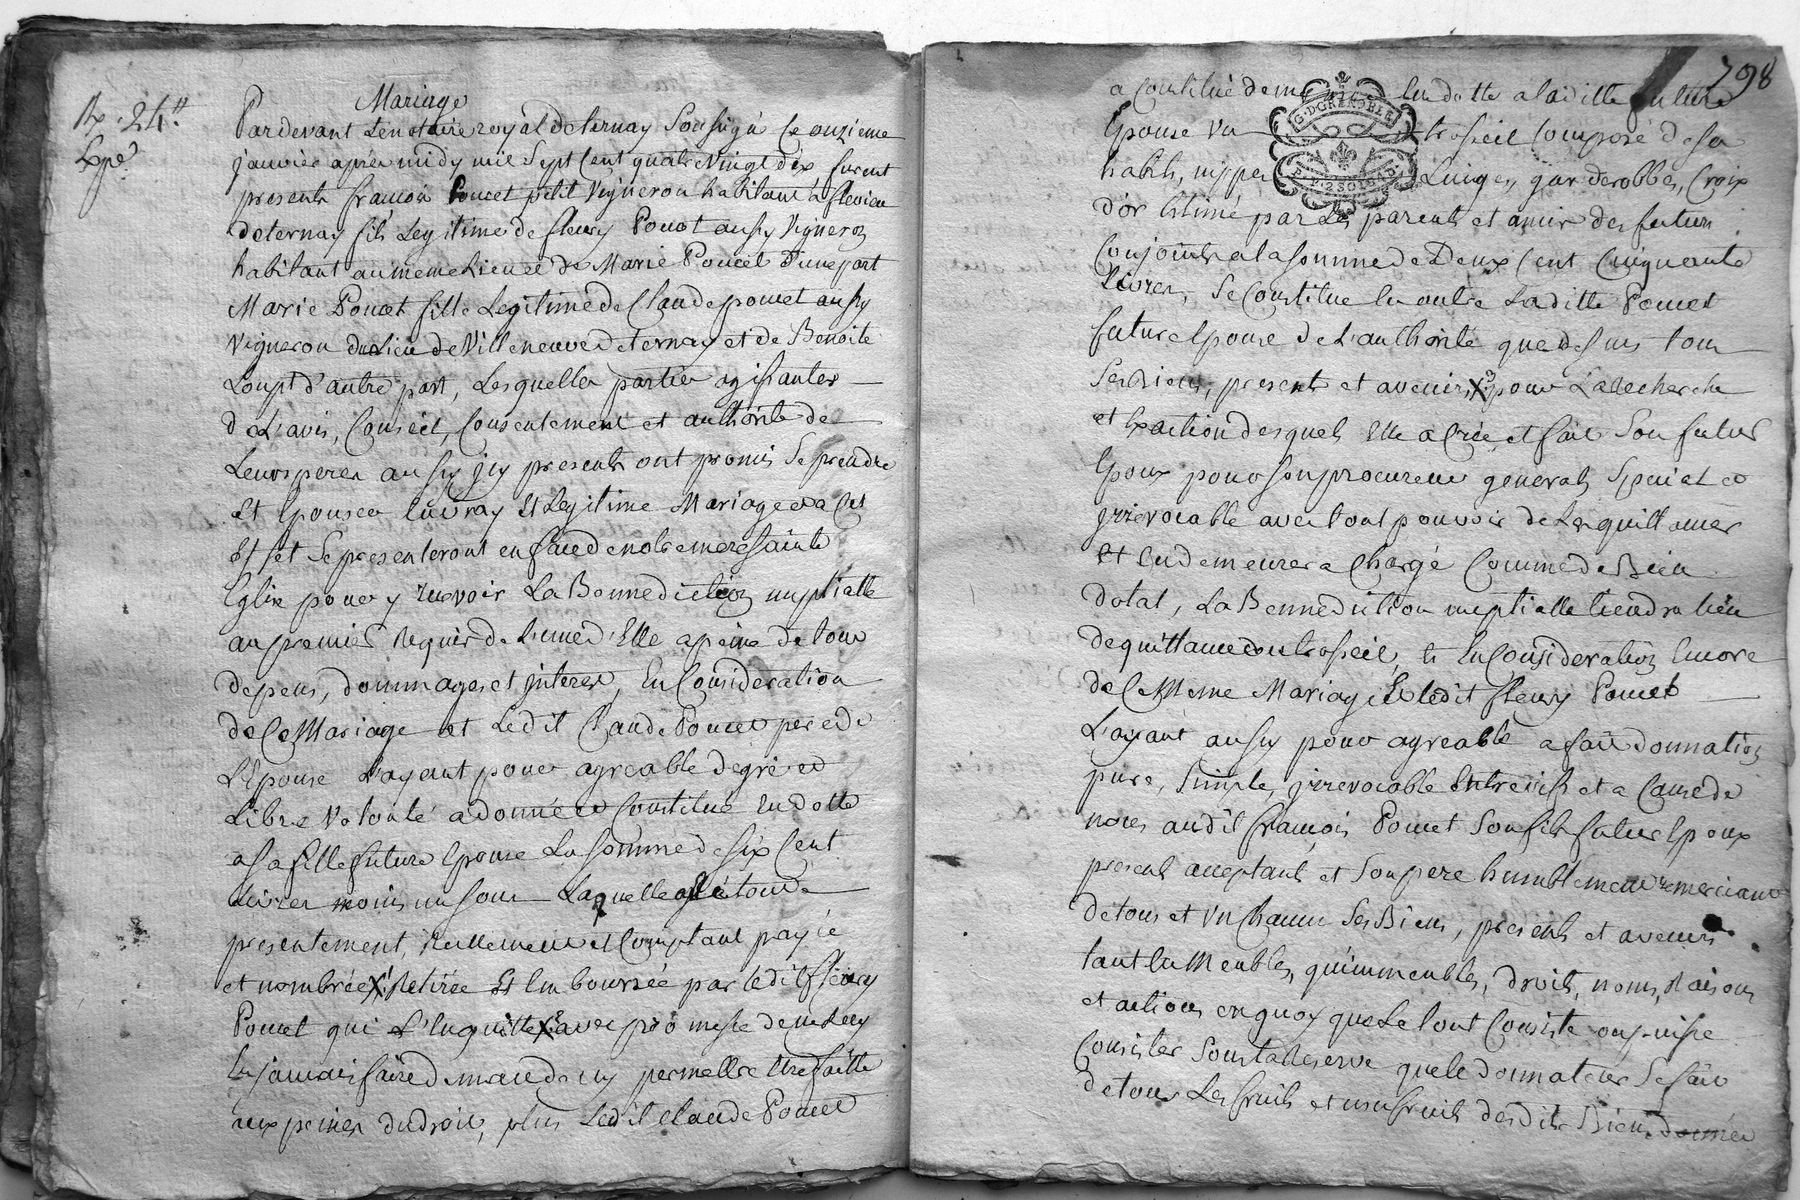 Mariage
Rx. 24"
Expé
Pardevant Le notaire royal de ternay Soussigné Ce onzieme
janvier apres midy mil Sept Cent quatre Vingt dix furent
presents françois Poncet petit Vigneron habitant à flevieu
de ternay fils Legitime de fleury Poncet aussy Vigneron
habitant au meme Lieu et de Marie Poncet d'une part
Marie Poncet fille Legitime de Claude poncet aussy
Vigneron du Lieu de Villeneuve de ternay et de Benoite
Loupt d'autre part, Lesquelles parties agissantes
de L'avis, Conseil, Consentement et authorité de
Leurs peres aussy jcy presents ont promis Se prendre
et Epouser En vray et Legitime Mariage et a Cet
effet Se presenteront en face de notre mere Sainte
Eglise pour y recevoir La Bennediction nuptialle
au premier requis de L'un ed'Elle a peine de tous
depens, dommages et jnterest, En Consideration
de Ce Mariage et Ledit Claude Poncet pere de
L'Epouse L'ayant pour agreable de gré et
Libre Volonté a donné et Constitué En dotte
a Sa fille future Epouse La Somme de Six Cent
Livres moins un Sour Laquelle a été toute
presentement, reellement et Comptant payée
et nombrée X Retirée Et Emboursée par Ledit fleury
Poncet qui L'Enquitte X avec promesse de ne Luy
En jamais faire demande ny permettre Etre faitte
aux peines du droit, plus Ledit Claude Poncet
798
a Constitué de me En dotte a Laditte future
Epouse Un trosseil Composé de Ses
G. D GRENOBLE
P. P. 2 SOLS 8 D
habits, nippes Linges, garderobbes, Croix
d'or Estimé par Les parents et amis des futurs
Conjoints a La Somme de Deux Cent Cinquante
Livres, Se Constitue En outre Laditte Poncet
future Epouse de L'authorité que dessus tous
Ses Biens, presents et avenirs X pour La Recherche
et Exaction desquels Elle a Créé, et fait Son futur
Epoux pour Son procureur general, Special et
jrrevocable avec tout pouvoir de Les quittancer
et En demeurera Chargé Comme de Bien
dotal, La Bennediction nuptialle tiendra Lieu
de quittance du trosseil, Et En Consideration Encore
de Ce Meme Mariage Et Ledit fleury Poncet
L'ayant aussy pour agreable a fait donnation
pure, Simple, jrrevocable Entrevifs et a Cause de
noces audit françois Poncet Son fils futur Epoux
present acceptant et Son pere humblement remerciant
de tous et Un Chacun Ses Biens, presents et avenirs
tant En Meubles, qu'immeubles, droits, noms, Raisons
et actions en quoy que Le tout Consiste ou puisse
Consister Sous La Reserve que Le donnateur Se fait
de tous Les fruits et usufruits desdits Biens donnés